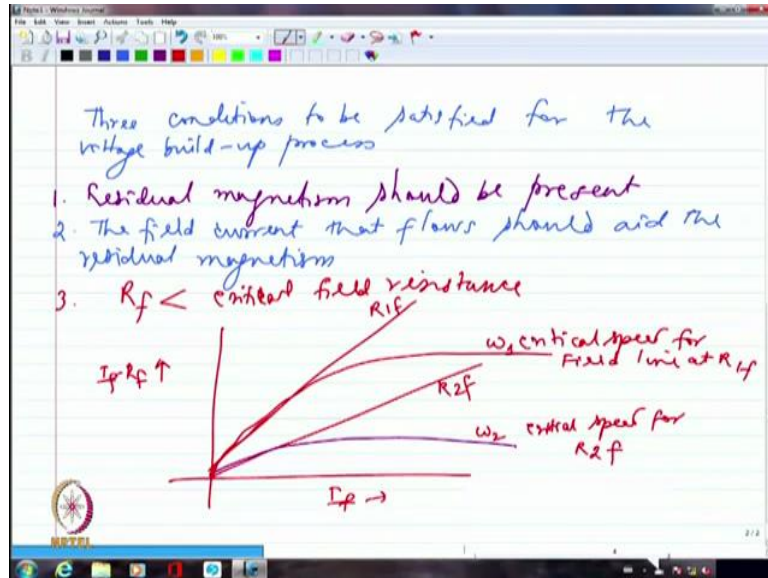 Note1 - Windows Journal
File Edit View Insert Actions Tools Help
100%
B I
Three conditions to be satisfied for the
voltage build-up process
1. Residual magnetism should be present
2. The field current that flows should aid the
residual magnetism
3. Rf < critical field resistance
R1f
ω1 critical speed for
Field line at R1f
If·Rf ↑
R2f
ω2 critical speed for
R2f
If →
NPTEL
2/2